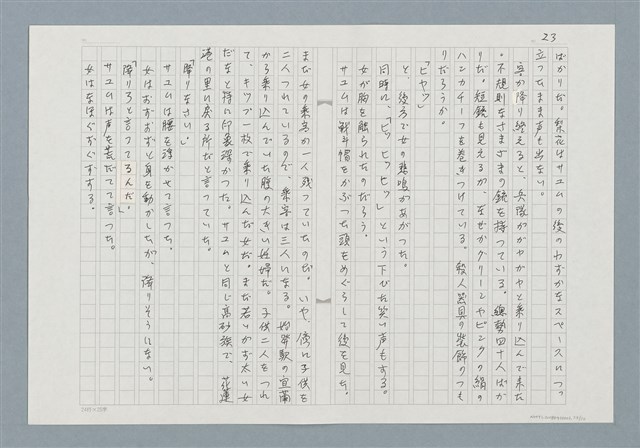 23
ばかりだ。梨花はサユムの後のわずかなスペースにつっ
立ったまま声も出ない。
客が降り終えると、兵隊がガヤガヤと乗り込んで来た
。不規則なさまざまの銃を持っている。総勢四十人ばか
りだ。短銃も見えるが、なぜかグリーンやピンクの絹の
ハンカチーフを巻きつけている。殺人器具の装飾のつも
りだろうか。
「ヒヤッ」
と、後ろで女の悲鳴があがった。
同時に、「ヒッ ヒッ ヒッ」という下びた笑い声もする。
女が胸を触られたのだろう。
サユムは戦斗帽をかぶった頭をめぐらして後を見た。
まだ女の乗客が一人残っていたのだ。いや、傍に子供を
二人つれているので、乗客は三人になる。始発駅の宜蘭
から乗り込んでいた腹の大きい妊婦だ。子供二人をつれ
て、キップ一枚で乗り込んだ女だ。まだ若いがず太い女
だなと特に印象深かった。サユムと同じ高砂族で、花蓮
港の里に戻る所だと言っていた。
「降りなさい」
サユムは腰を浮かせて言った。
女はおずおずと身を動かしたが、降りそうにない。
「降りろと言ってるんだ。」
サユムは声を荒だてて言った。
女はなほぐずぐずする。